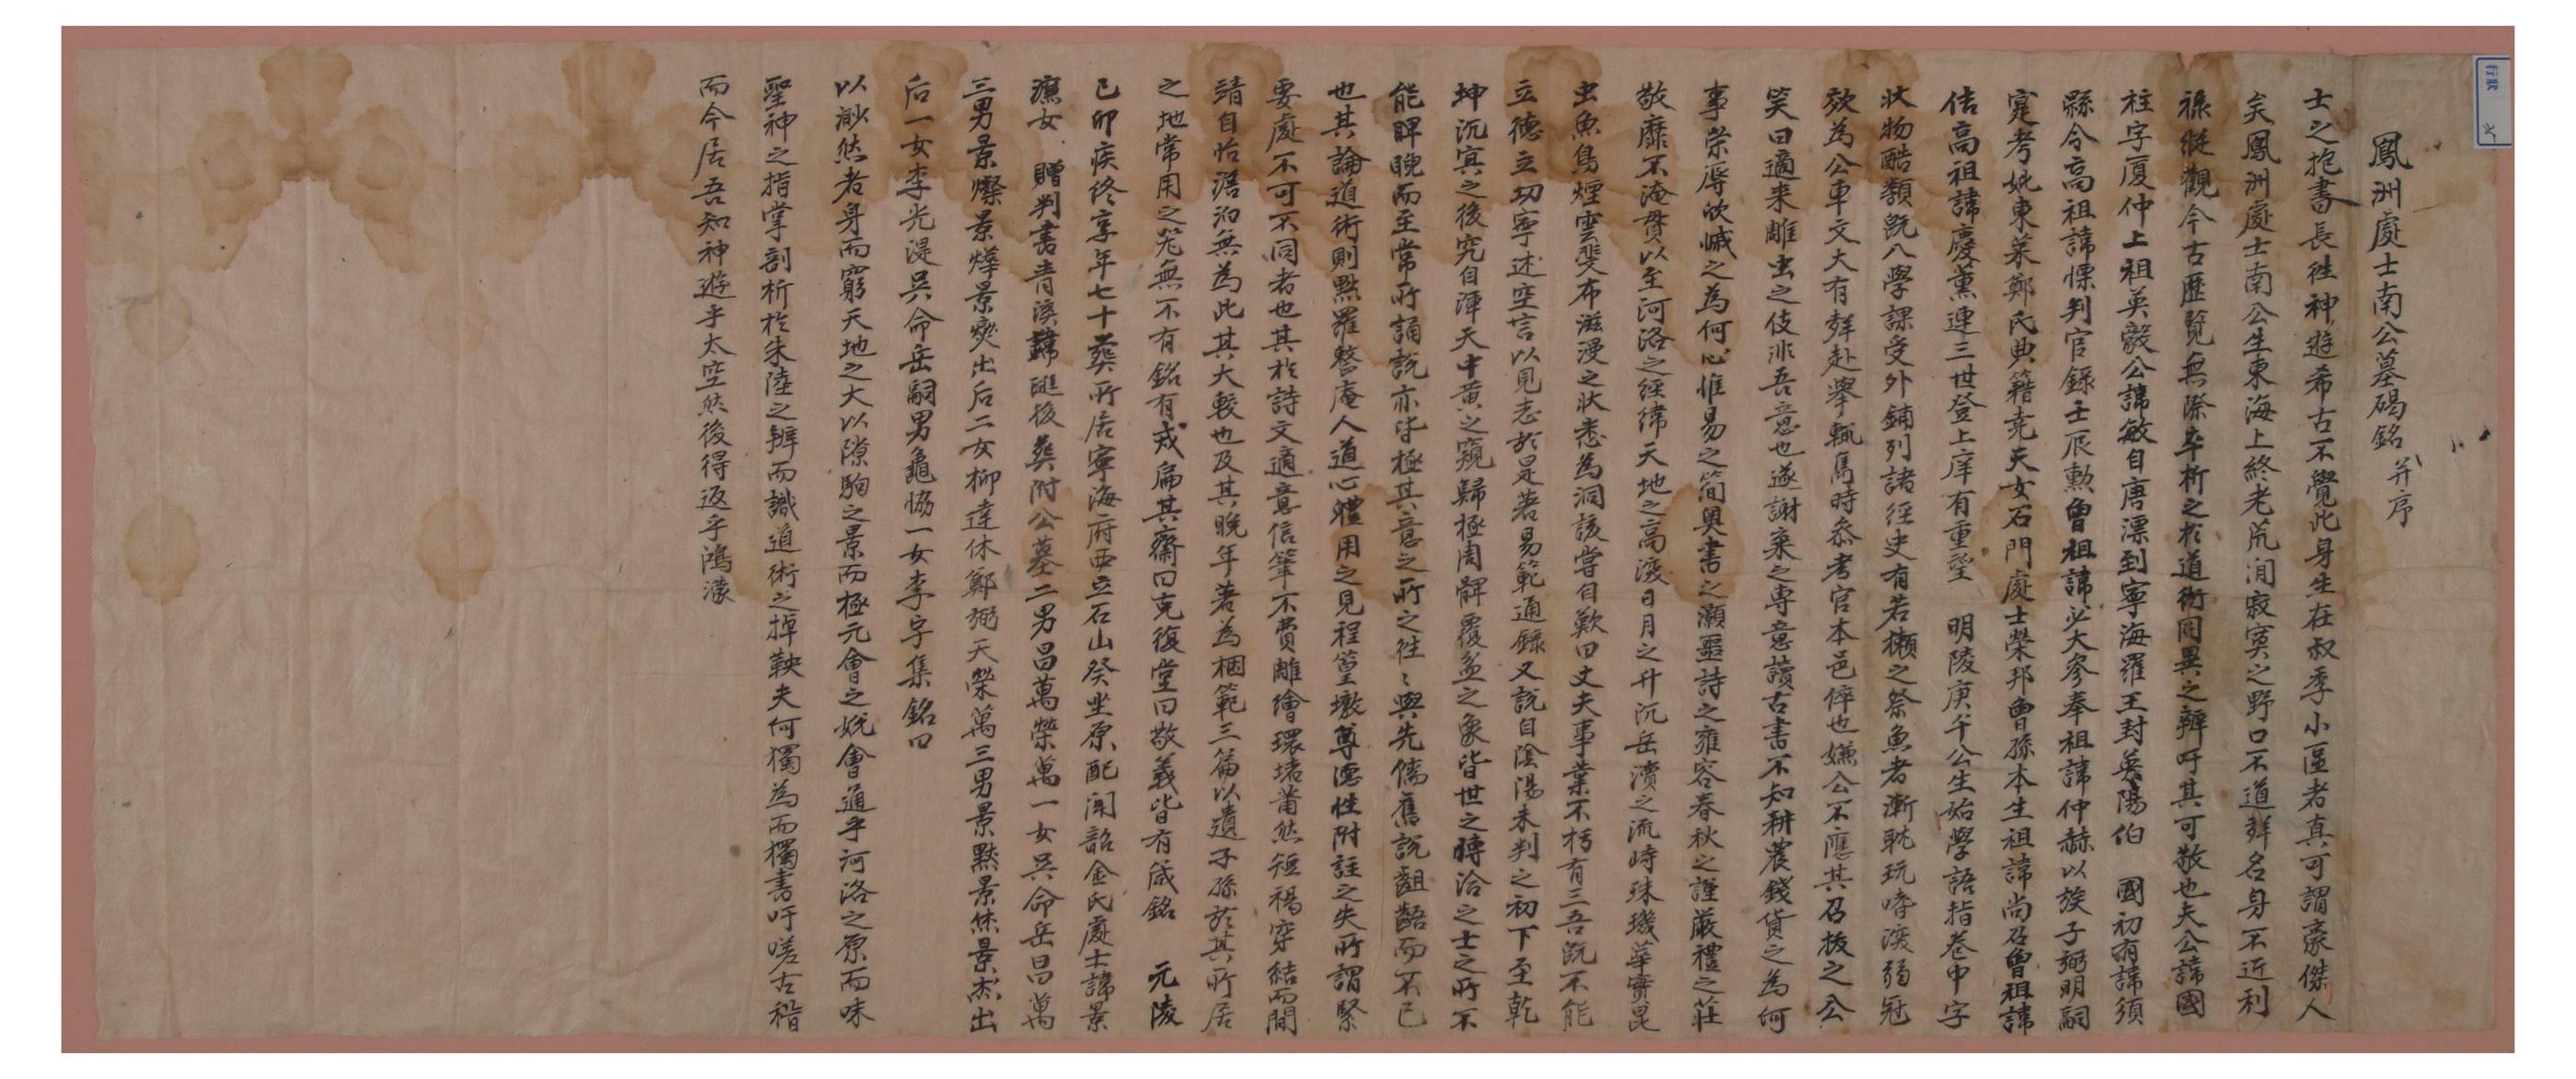 鳳洲處士南公墓碣銘 并序
士之抱書長往神遊希古不覺此身生在叔季小區者真可謂豪傑人
矣鳳洲處士南公生東海上終老荒閒寂寞之野口不道聲名身不近利
祿縱觀今古歷覽無際卒析之於道術同異之辨吁其可敬也夫公諱國
柱字廈仲上祖英毅公諱敏自唐漂到寧海羅王封英陽伯 國初有諱須
縣令高祖諱慄判官錄壬辰勲曾祖諱必大參奉祖諱仲赫以族子弼明嗣
寔考妣東萊鄭氏典籍堯天女石門處士榮邦曾孫本生祖諱尚召曾祖諱
佶高祖諱慶薰連三世登上庠有重望 明陵庚午公生始學語指卷中字
狀物酷類旣入學課受外鋪列諸徑史有若獺之祭魚者漸耽玩嗜渡弱冠
效為公車文大有聲赴擧輒雋時叅考官本邑倅也嫌公不應其召拔之公
笑曰適来雕虫之伎非吾意也遂謝棄之専意讀古書不知耕農錢貨之為何
事榮辱欣慽之為何心惟易之簡奥書之灝噩詩之雍容春秋之謹嚴禮之莊
敬靡不淹貫以至河洛之經緯天地之高深日月之升沉岳瀆之流峙珠璣華實昆
虫魚鳥煙雲斐布滋漫之狀悉為洞該嘗自歎曰丈夫事業不朽有三吾旣不能
立德立功寧述空言以見志於是著易範通錄又說自陰陽未判之初下至乾
坤沉冥之後究自渾天中黄之窺歸極周髀覆盆之象皆世之博洽之士之所不
能睥睨而至常所誦說亦皆極其意之所之往〻與先儒舊說齟齬而不已
也其論道術則點羅整庵人道心體用之見程篁墩尊德性附註之失所謂緊
要處不可不同者也其於詩文適意信筆不費雕繪環堵蕭然短褐穿結而閒
靖自怡澹泊無為此其大較也及其晚年著為梱範三篇以遺子孫於其所居
之地常用之器無不有銘有戒扁其齋曰克復堂曰敬義皆有箴銘 元陵
己卯疾終享年七十葬所居寧海府西立石山癸坐原配聞韶金氏處士諱景
濂女 贈判書青溪諱璡後葬附公墓二男昌萬榮萬一女吳命岳昌萬
三男景燦景燁景爕出后二女柳達休鄭弼天榮萬三男景黙景烋景杰出
后一女李光湜吳命岳嗣男龜恊一女李宇集銘曰
以渺然者身而窮天地之大以隙駒之景而極元會之蛻會通乎河洛之原而昧
聖神之指掌剖析於朱陸之辨而識道術之掉鞅夫何獨為而獨書吁嗟古稽
而今居吾知神遊乎太空然後得返乎鴻濛